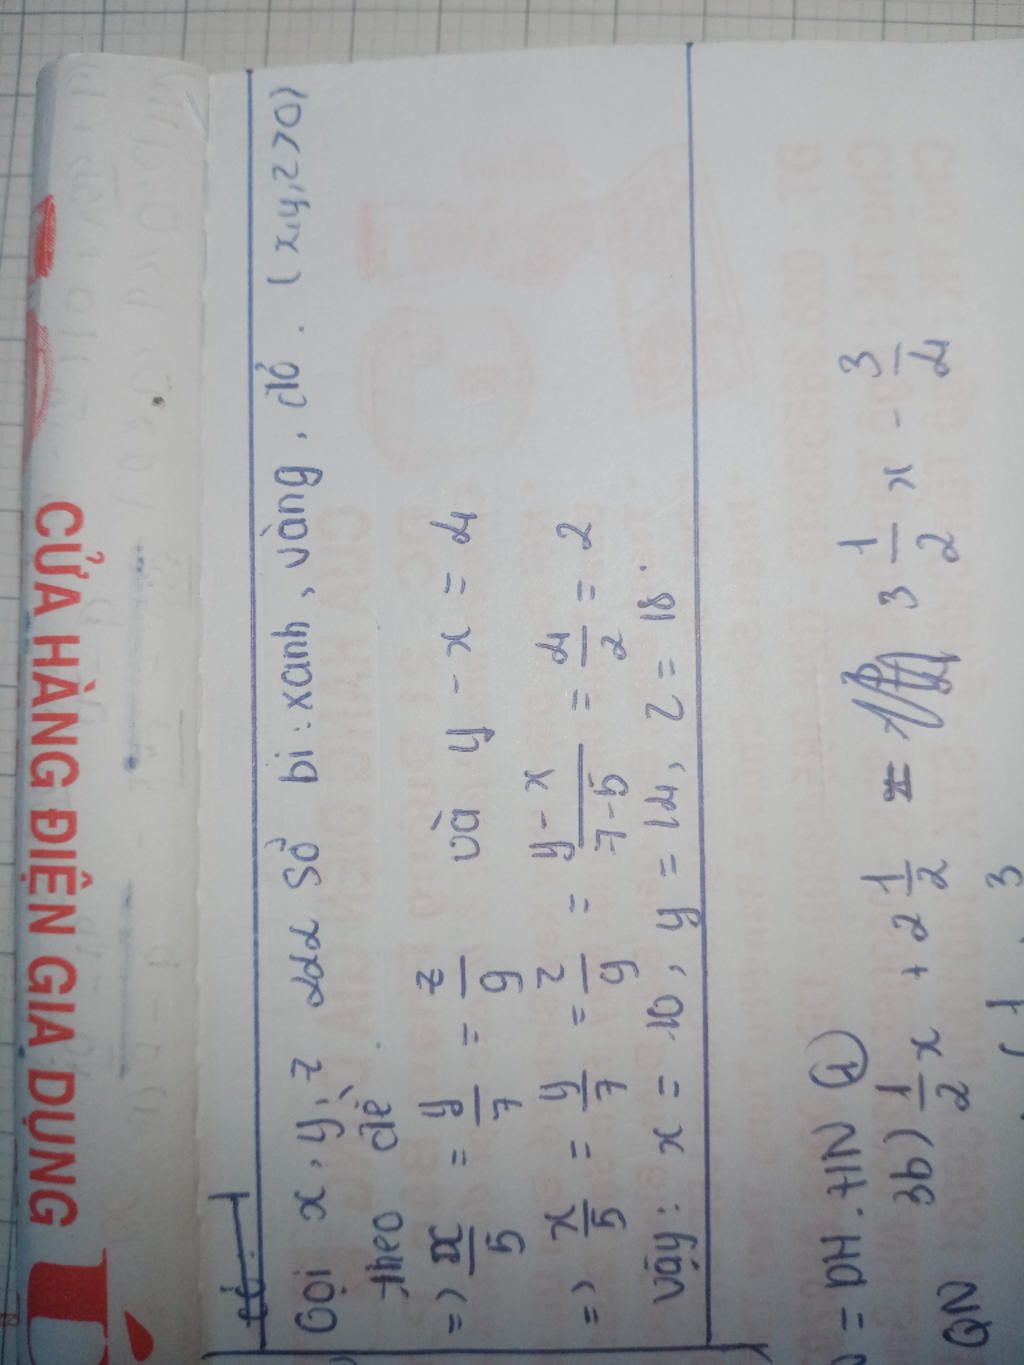 CỬA HÀNG ĐIỆN GIA DỤNG
Gọi x, y, z số bi: xanh, vàng, đỏ. (x,y,z>0)
theo đề
=> x/5 = y/7 = z/9 và y - x = 4
=> x/5 = y/7 = z/9 = y - x/7-5 = 4/2 = 2
Vậy: x = 10, y = 14, z = 18.
= DH.HN
3b) 1/2 x + 2 1/2 = 3 1/2 x - 3/4
QN